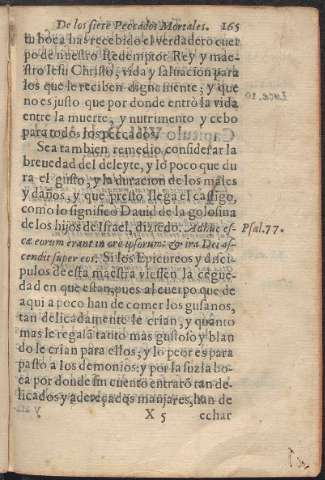 De los siete Peccados Mortales. 165
tu boca has recebido el verdadero cuer
po de nuestro Redemptor Rey y mae-
stro Iesu Christo, vida y saluacion para
los que le reciben dignamente; y que
no es justo que por donde entrò la vida
entre la muerte, y nutrimento y cebo
para todos los peccados.
Sea tambien remedio considerar la
breuedad del deleyte, y lo poco que du
ra el gusto, y la duracion de los males
y daños, y que presto llega el castigo,
como lo significò Dauid de la golosina
de los hijos de Israel, diziẽdo. Adhuc es-
cæ eorum erant in ore ipsorum: & ira Dei as-
cendit super eos. Si los Epicureos y disci-
pulos de esta maestra viessen la cegue-
dad en que estan, pues al cuerpo que de
aqui a poco han de comer los gusanos,
tan delicadamente le crian, y quanto
mas le regalã tanto mas gustoso y blan
do le crian para ellos, y lo peor es para
pasto a los demonios: y por la suzia bo-
ca por donde sin cuento entrarõ tan de-
licados y adereçados manjares, han de
X 5 echar
Psal. 77.